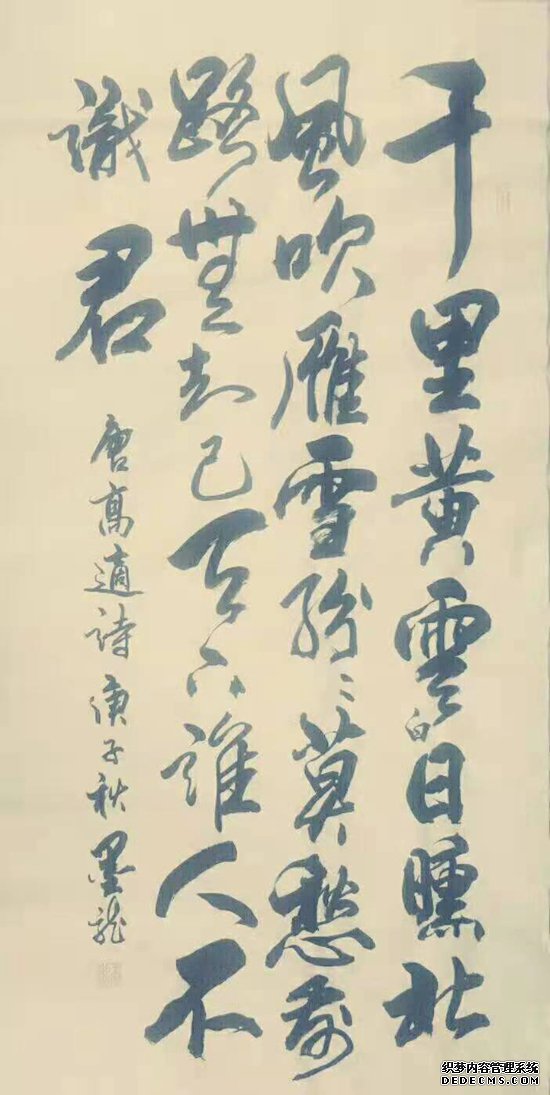 千里黄雲白日曛北
風吹雁雪紛〻莫愁前
路無知己天下誰人不
識君
唐高適詩 庚子秋 墨龍
织梦内容管理系统
DEDECMS.COM